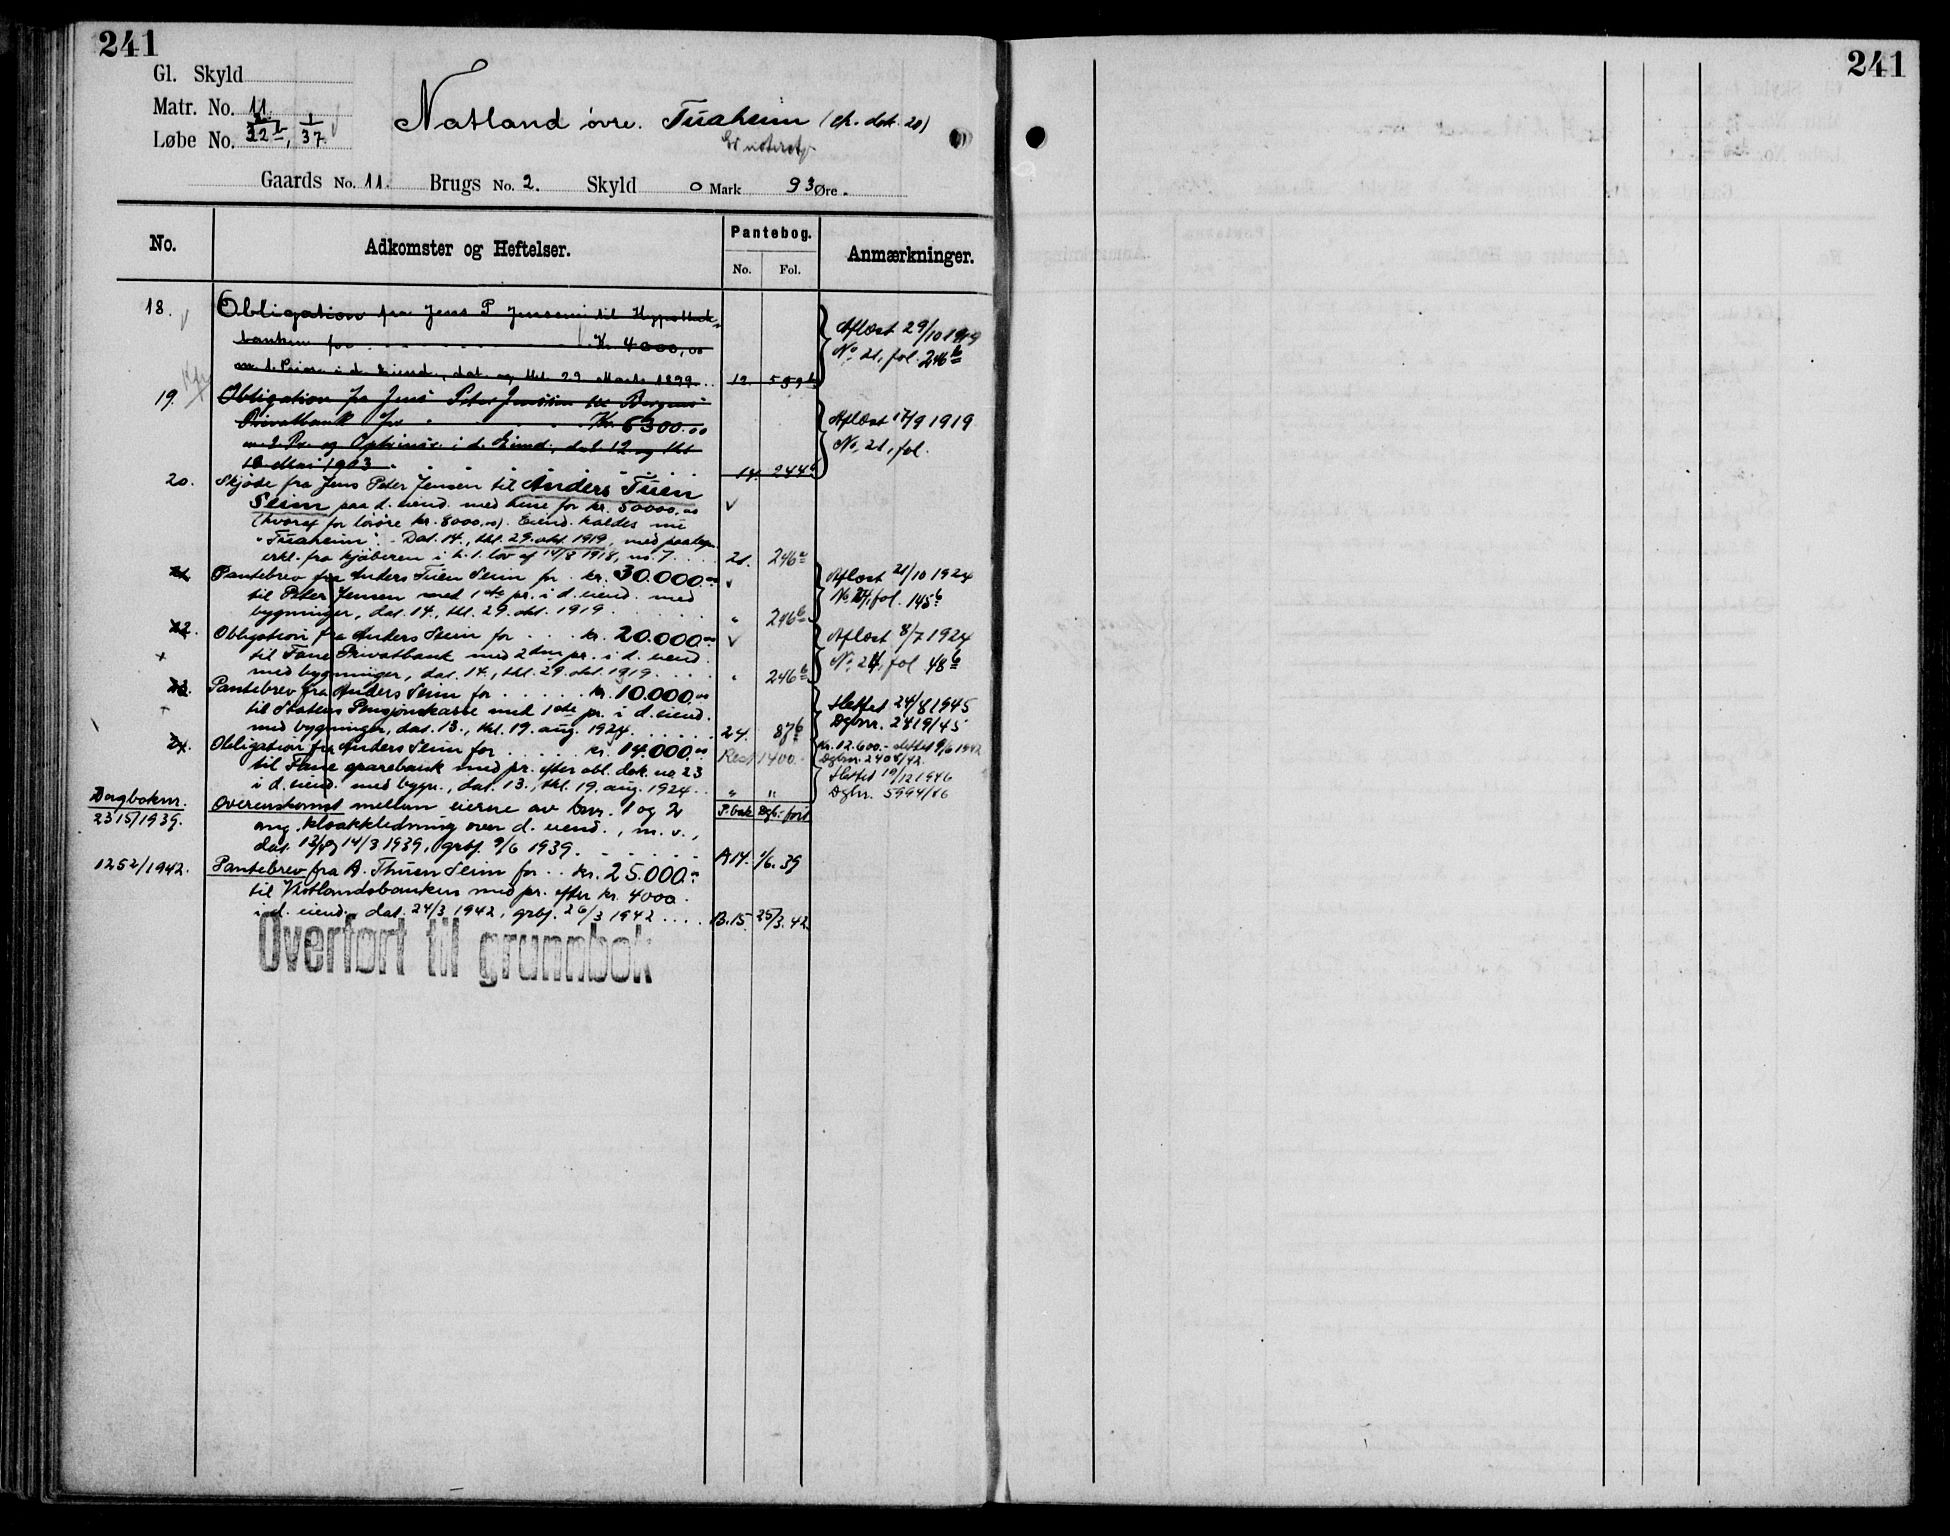 241
Gl. Skyld
Matr. No. 11.
Løbe No. 32 1/37
Natland øvre. Tuaheim (cfr. dok. 20)
Er notert
Gaards No. 11. Brugs No. 2. Skyld 0 Mark 93 Øre.
No. Adkomster og Heftelser. Pantebog. No. Fol. Anmærkninger.
18. Obligation fra Jens P Jensen til Hypothek-
banken for Kr. 4000,00
m. 1. Prior. i d. Eiend., dat. og thl. 29 Marts 1899. 12. 589b
Aflæst 29/10 1919
No. 21, fol. 246b
19. Obligation fra Jens Peter Jensen til Bergens
Privatbank for Kr. 6300.00
m. 2. Pr. og Optrinsr. i d. Eiend., dat. 12 og thl
18 Mai 1903. 14. 244b
Aflæst 17/9 1919
No. 21, fol.
20. Skjøde fra Jens Peter Jensen til Anders Tuen
Seim paa d. eiend. med huse for kr. 50000,00
(hvoraf for løsøre kr. 8000,00). Eiend. kaldes nu
"Tuaheim". Dat. 14., thl. 29. okt. 1919, med paategn.
erkl. fra kjøberen i h. t. lov af 14/8 1918, nr. 7. 21. 246a
21. Pantebrev fra Anders Tuen Seim for kr. 30.000.00
til Peter Jensen med 1ste pr. i d. eiend. med
bygninger, dat. 14., thl. 29. okt. 1919. " 246b
Aflæst 21/10 1924
No 24, fol. 145b
22. Obligation fra Anders Seim for kr. 20.000.00
til Fane Privatbank med 2den pr. i d. eiend.
med bygninger, dat. 14., thl. 29. okt. 1919. " 246b
Aflæst 8/7 1924
No. 24, fol 48b
23. Pantebrev fra Anders Seim for kr. 10.000.00
til Statens Pensjonskasse med 1ste pr. i d. eiend.
med bygninger, dat. 13., thl. 19. aug. 1924. 24. 87b
Slettet 24/8 1945
Dgbnr. 2419/45
24. Obligation fra Anders Seim for kr. 14.000.00
til Fane sparebank med pr. efter obl. dok. no 23
i d. eiend. med bygn., dat. 13., thl. 19. aug. 1924. " "
Rest 1400.-
Kr. 12.600.- slettet 9/6 1942
Dgbnr. 2408/42.
Slettet 10/12 1946
Dgbnr. 5994/46
Dagboknr.
2315/1939. Overenskomst mellom eierne av bnr. 1 og 2 P.bok Dgb. ført
ang. kloakkledning over d. eiend., m. v.,
dat. 13/ og 14/3 1939, grbf. 9/6 1939. A 17. 1/6. 39
1252/1942. Pantebrev fra A. Thuen Seim for kr. 25.000.00
til Vestlandsbanken med pr. efter kr. 4000.
i d. eiend., dat. 24/3 1942, grbf. 26/3 1942 B.15. 25/3. 42.
Overført til grunnbok
241